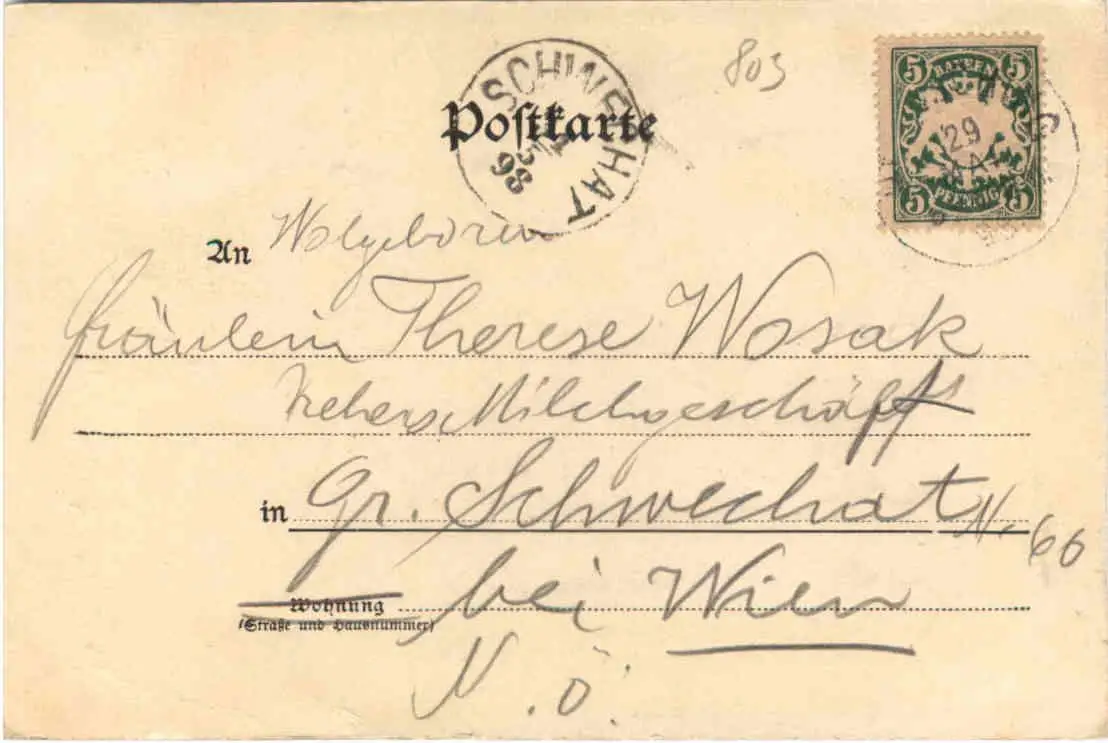 803
SCHWECHAT
98
Postkarte
BAYERN
5 5
29
MAI
5 5
PFENNIG
Wolgeboren
An
Fräulein Therese Wosak
Milchgeschäft
in Gr. Schwechat N. 66
Wohnung bei Wien
(Straße und Hausnummer)
N. Ö.